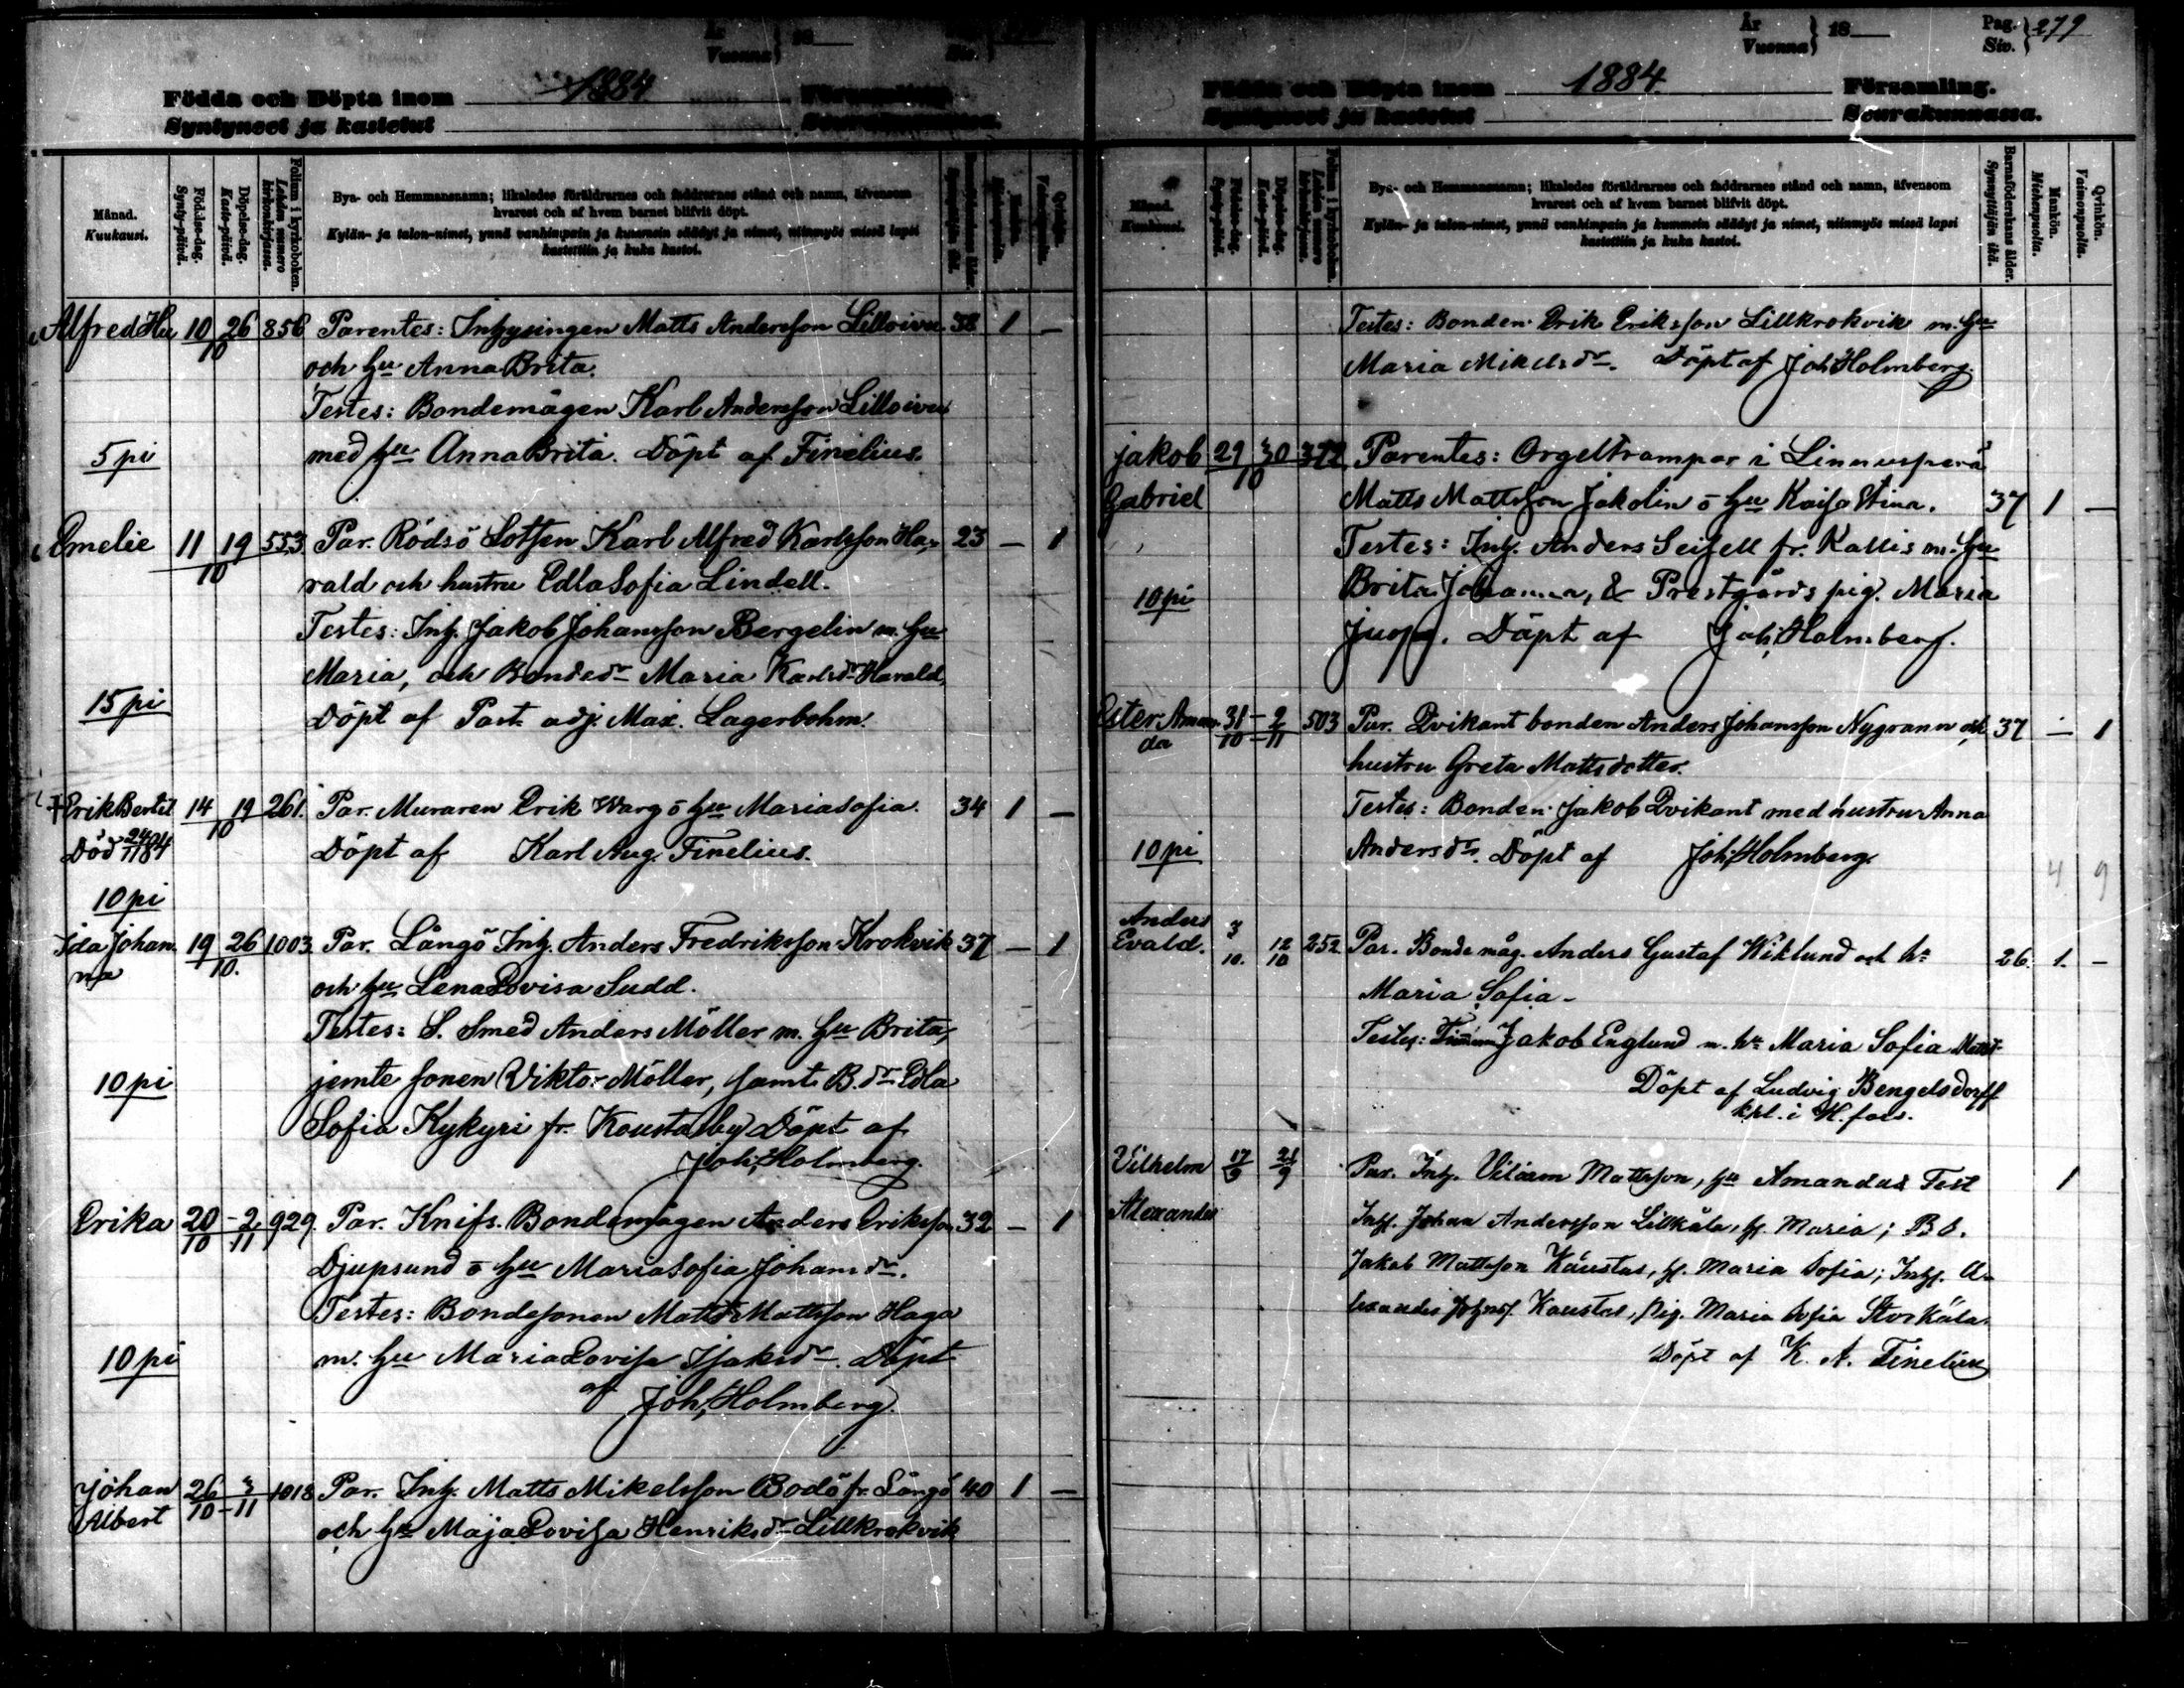 År
Vuonna } 18
Födda och Döpta inom 1884 Församling.
Syntyneet ja kastetut Seurakunnassa.
Månad.
Kuukausi.
Födelse-dag.
Synty-päivä.
Döpelse-dag.
Kaste-päivä.
Folium i kyrkoboken.
Lehden numero kirkonkirjassa.
Bya- och Hemmansnamn; likaledes föräldrarnes och faddrarnes stånd och namn, äfvensom
hvarest och af hvem barnet blifvit döpt.
Kylän- ja talon-nimet, ynnä vanhimpain ja kummein säädyt ja nimet, niinmyös missä lapsi
kastettiin ja kuka kastoi.
Alfred 10 26 856 Parentes: Inhysingen Matts Andersson 38 1 —
10
och hu Anna Brita.
Testes: Bondemågen Karl Andersson
5 pi med hu Anna Brita. Döpt af Finelius.
Emelie 11 19 553 Par. Rödsö Lotsen Karl Alfred Karlsson Ha- 23 — 1
10
rald och hustru Edla Sofia Lindell.
Testes: Inh. Jakob Johansson Bergelin m. hu
Maria, och Bondedr Maria Karlsdr Harald,
15 pi Döpt af Past. adj. Max. Lagerbohm.
† Erik Bertil 14 19 261. Par. Muraren Erik Warg o hu Maria Sofia 34 1 —
10
Död 24/11 84 Döpt af Karl Aug. Finelius.
10 pi
Ida Johan- 19 26 1003 Par. Långö Inh. Anders Fredriksson Krokvik 37 — 1
na 10.
och hu Lena Lovisa Sudd.
Testes: S. Smed Anders Möller m. hu Brita,
10 pi jemte sonen Viktor Möller, samt B.dr Edla
Sofia Kykyri fr. Kaustarby Döpt af
Joh. Holmberg.
Erika 20 – 2 929. Par. Knifs. Bondemågen Anders Eriksson 32 — 1
10 11
Djupsund o hu Maria Sofia Johansdr.
Testes: Bondesonen Matts Mattsson Haga
10 pi m. hu Maria Lovisa Isaksdr. Döpt
af Joh. Holmberg.
Johan 26 – 3 1018 Par. Inh. Matts Mikelsson Bodö fr. Långö 40 1 —
Albert 10 – 11
och hu Maja Lovisa Henriksdr Lillkrokvik
År
Vuonna } 18
Pag.
Siv. } 279
Födda och Döpta inom 1884 Församling.
Syntyneet ja kastetut Seurakunnassa.
Månad.
Kuukausi.
Födelse-dag.
Synty-päivä.
Döpelse-dag.
Kaste-päivä.
Folium i kyrkoboken.
Lehden numero kirkonkirjassa.
Bya- och Hemmansnamn; likaledes föräldrarnes och faddrarnes stånd och namn, äfvensom
hvarest och af hvem barnet blifvit döpt.
Kylän- ja talon-nimet, ynnä vanhimpain ja kummein säädyt ja nimet, niinmyös missä lapsi
kastettiin ja kuka kastoi.
Barnaföderskans ålder.
Synnyttäjän ikä.
Mankön.
Miehenpuolia.
Qvinkön.
Vaimonpuolia.
Testes: Bonden Erik Eriksson Lillkrokvik m. hu
Maria Mikelsdr. Döpt af Joh. Holmberg.
Jakob 29 30 372 Parentes: Orgeltrampar i
10
Gabriel Matts Mattsson Jakolin o hu Kaisa Stina. 37 1 —
Testes: Inh. Anders fr. Kallis m. hu
10 pi Brita Johanna, & Prestgårds pig. Maria
Döpt af Joh. Holmberg.
Ester Aman- 31 – 2 503 Par. Qvikant bonden Anders Johansson Nygrann och 37 — 1
da 10 – 11
hustru Greta Mattsdotter.
Testes: Bonden Jakob Qvikant med hustru Anna
10 pi Andersdr. Döpt af Joh. Holmberg.
4 9
Anders
Evald. 3/10. 12/10 252 Par. Bondemåg. Anders Gustaf Wiklund och h: 26. 1. —
Maria Sofia –
Testes: Jakob Englund m. h: Maria Sofia
Döpt af Ludvig Bengelsdorff
kpl. i H.fors.
Vilhelm 17/9 21/9 Par. Inh. Viliam Mattsson, hu Amanda Test 1
Alexander Inh. Johan Andersson Lillkåla, h. Maria; B d.
Jakob Mattsson Kaustar, h. Maria Sofia; Inh. A-
lexander Johnss. Kaustar, pig. Maria Sofia Storkåla.
Döpt af K. A. Finelius